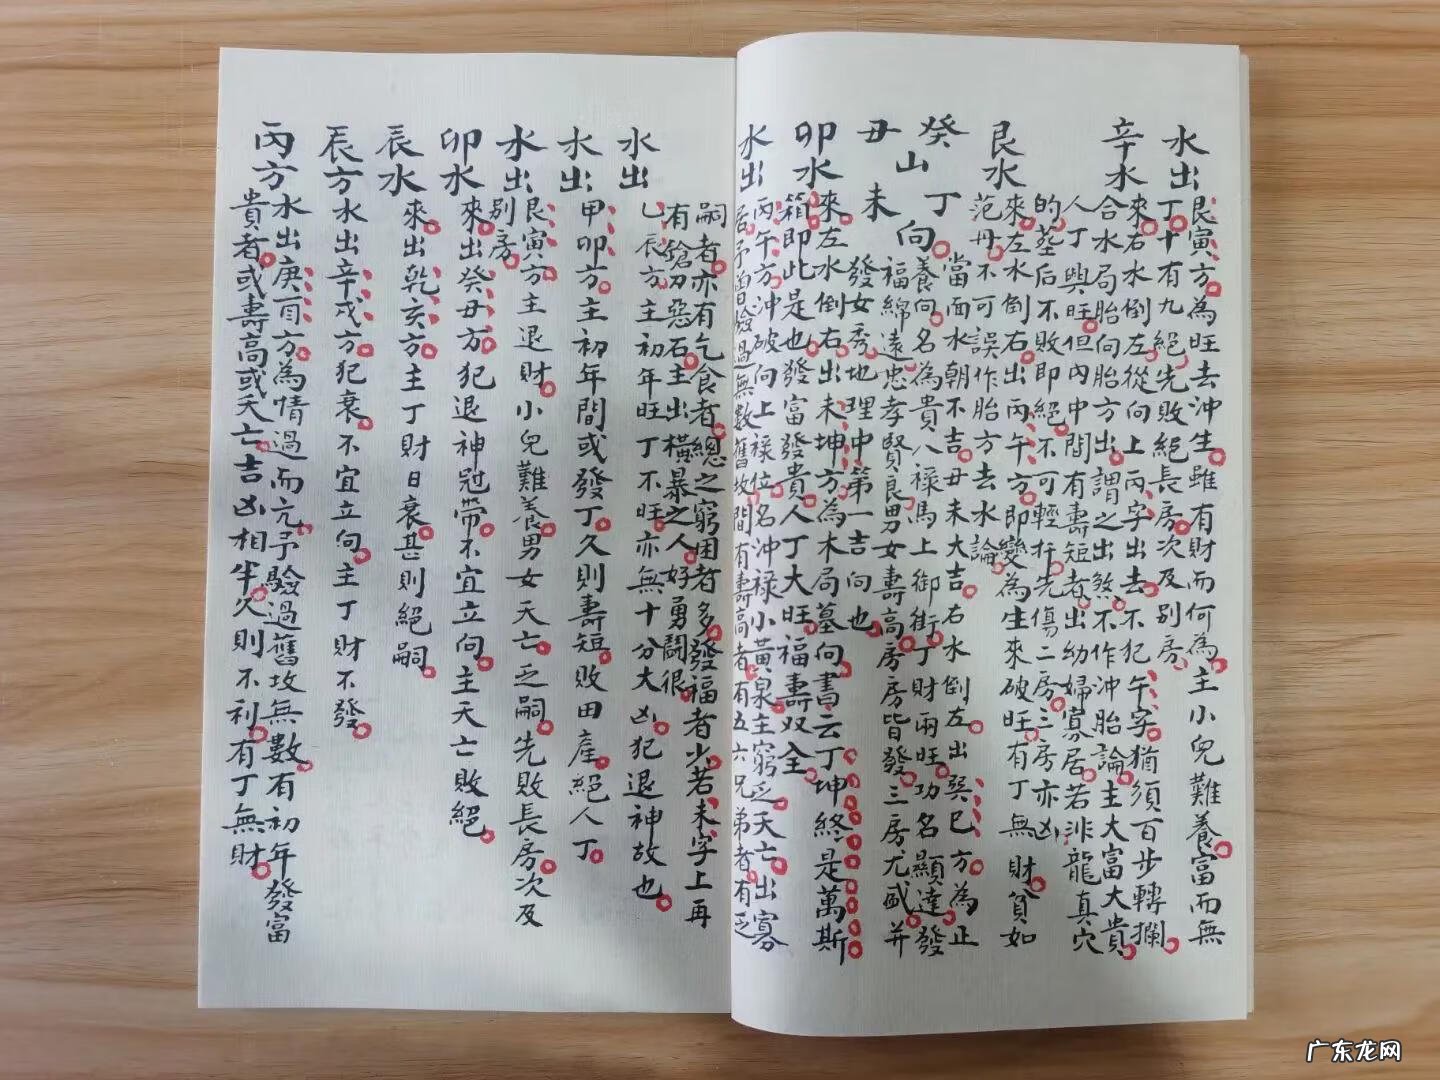 水出艮寅方為旺去沖生雖有財而何為主小兒難養富而無
丁十有九絕先敗絕長房次及別房
辛水來右水倒左從向上丙字出去不犯午字猶須百步轉攔
合水局胎向胎方出謂之出煞不作沖胎論主大富大貴
人丁興旺但內中間有壽短者出幼婦寡居若非龍真穴
的葬后不敗即絕不可輕扦先傷二房三房亦凶
艮水來左水倒右出丙午方即變為生來破旺有丁無財貧如
范丹不可誤作胎方去水論
癸山丁向
丑未
當面水朝不吉丑未大吉右水倒左出巽巳方為正
養向名為貴人祿馬上御街丁財兩旺功名顯達發
福綿遠忠孝賢良男女壽高房房皆發三房尤盛并
發女秀地理中第一吉向也
卯水來左水倒右出未坤方為木局墓向書云丁坤終是萬斯
箱即此是也發富發貴人丁大旺福壽双全
水出丙午方沖破向上祿位名沖祿小黃泉主窮乏夭亡出寡
居予曾驗過無數舊坟間有壽高者有五六兄弟者有乏
嗣者亦有乞食者總之窮困者多發福者少若未字上再
有鎗刀惡石主出橫暴之人好勇鬪很
水出乙辰方主初年旺丁不旺亦無十分大凶犯退神故也
水出甲卯方主初年間或發丁久則壽短敗田產絕人丁
水出艮寅方主退財小兒難養男女夭亡乏嗣先敗長房次及
別房
卯水來出癸丑方犯退神冠帶不宜立向主夭亡敗絕
辰水來出乾亥方主丁財日衰甚則絕嗣
辰方水出辛戌方犯衰不宜立向主丁財不發
丙方水出庚酉方為情過而亢予驗過舊坟無數有初年發富
貴者或壽高或夭亡吉凶相半久則不利有丁無財
广东龙网